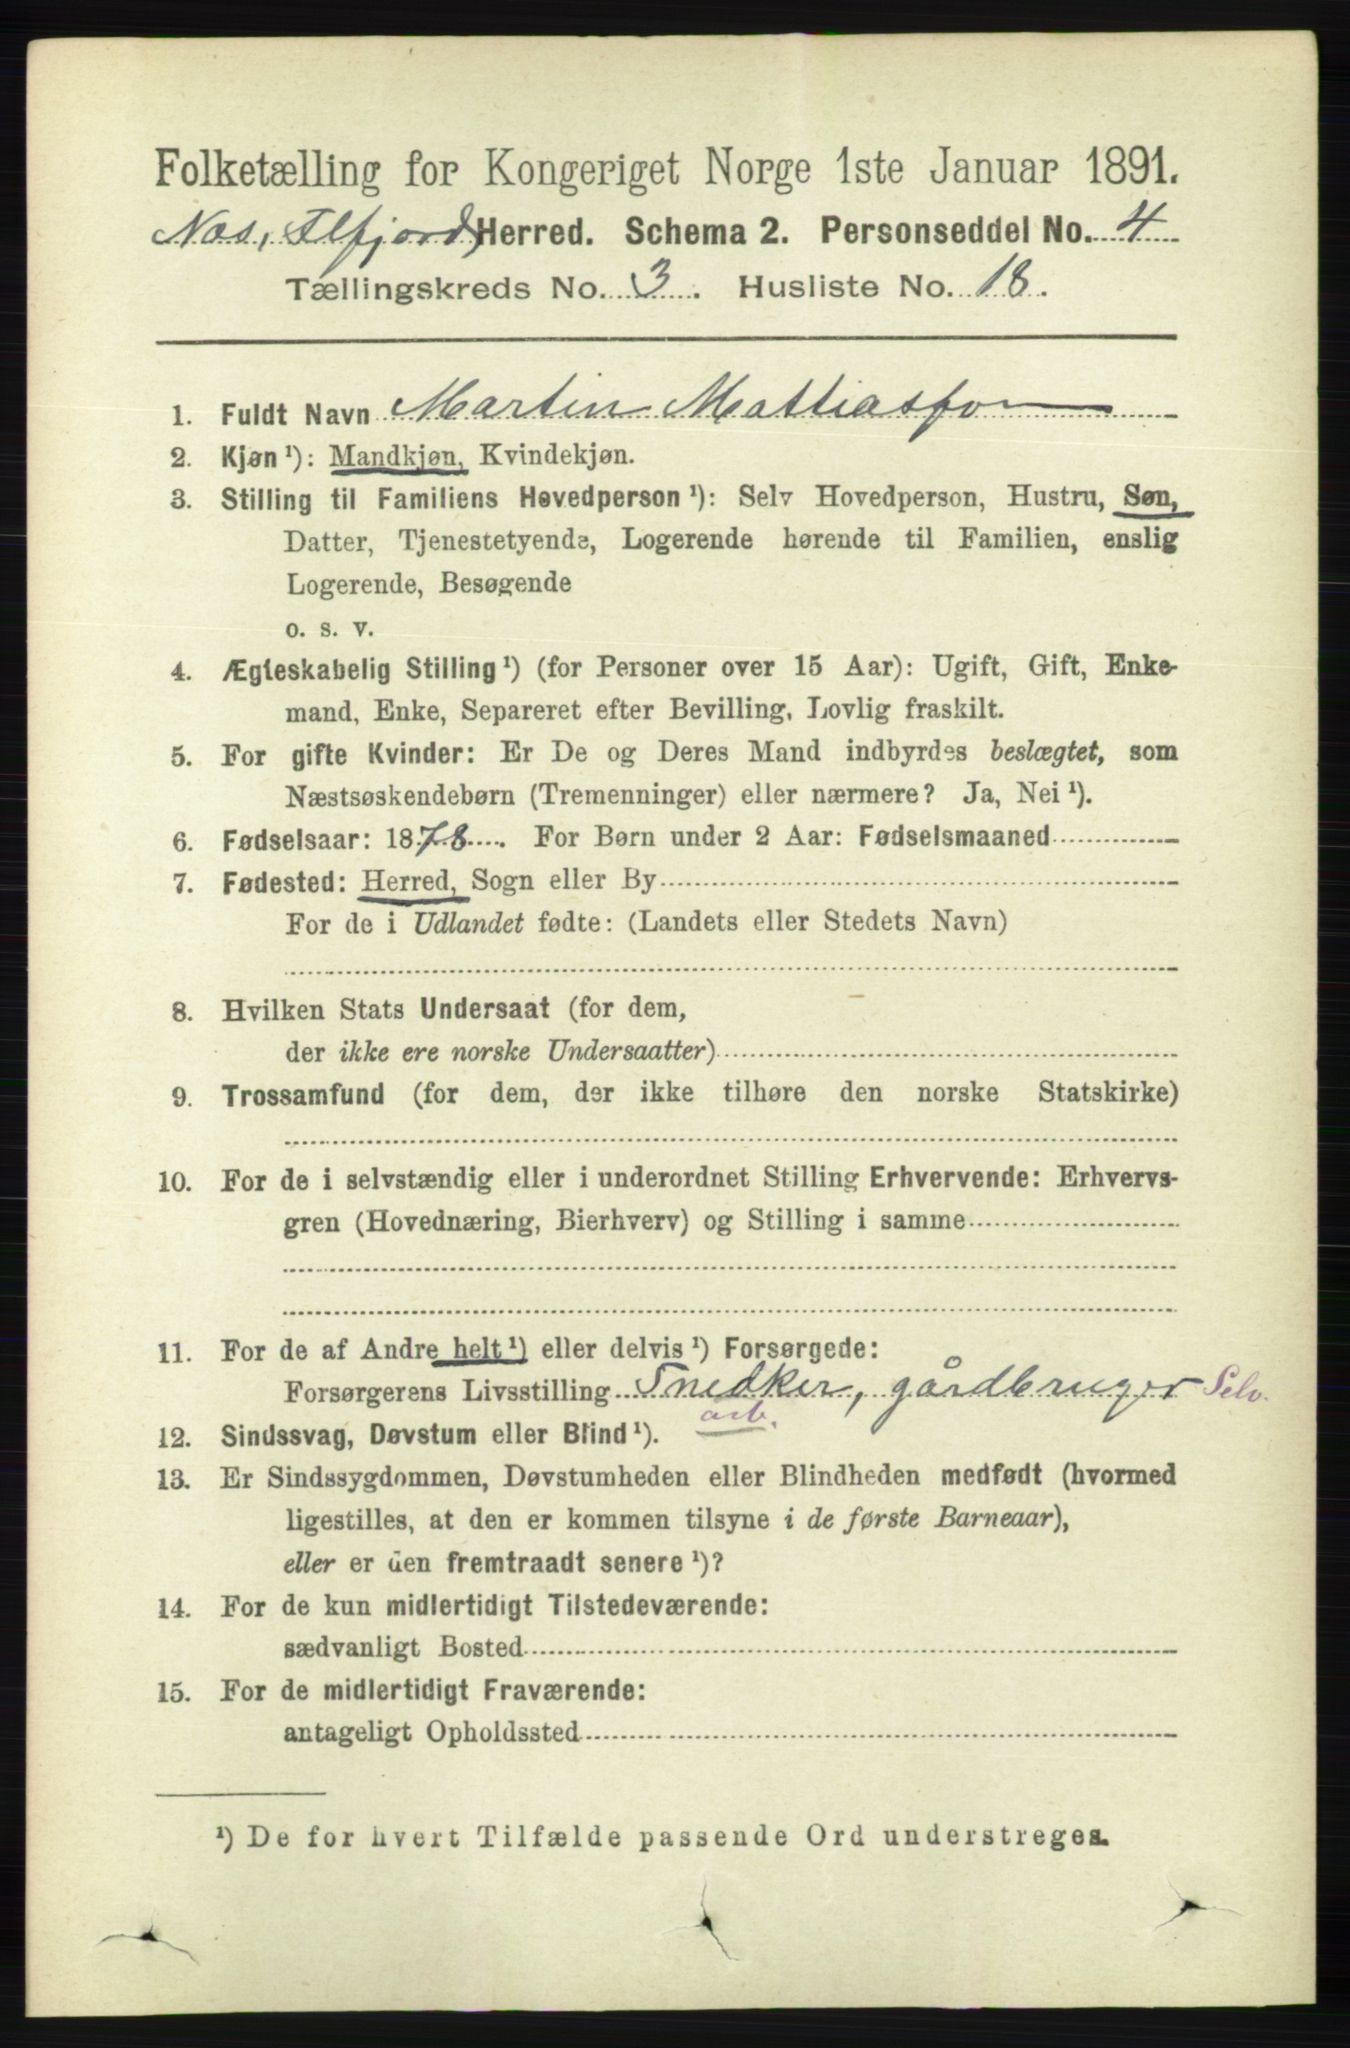 Folketælling for Kongeriget Norge 1ste Januar 1891.
Næs, Flesjord Herred. Schema 2. Personseddel No. 4
Tællingskreds No. 3. Husliste No. 18.
1. Fuldt Navn Martin Mattiasson
2. Kjøn ¹): Mandkjøn, Kvindekjøn.
3. Stilling til Familiens Hovedperson ¹): Selv Hovedperson, Hustru, Søn,
Datter, Tjenestetyende, Logerende hørende til Familien, enslig
Logerende, Besøgende
o. s. v.
4. Ægteskabelig Stilling ¹) (for Personer over 15 Aar): Ugift, Gift, Enke-
mand, Enke, Separeret efter Bevilling, Lovlig fraskilt.
5. For gifte Kvinder: Er De og Deres Mand indbyrdes beslægtet, som
Næstsøskendebørn (Tremenninger) eller nærmere? Ja, Nei ¹).
6. Fødselsaar: 1878. For Børn under 2 Aar: Fødselsmaaned
7. Fødested: Herred, Sogn eller By
For de i Udlandet fødte: (Landets eller Stedets Navn)
8. Hvilken Stats Undersaat (for dem,
der ikke ere norske Undersaatter)
9. Trossamfund (for dem, der ikke tilhøre den norske Statskirke)
10. For de i selvstændig eller i underordnet Stilling Erhvervende: Erhvervs-
gren (Hovednæring, Bierhverv) og Stilling i samme
11. For de af Andre helt ¹) eller delvis ¹) Forsørgede:
Forsørgerens Livsstilling Snedker, gårdbruger Selv.
arb.
12. Sindssvag, Døvstum eller Blind ¹).
13. Er Sindssygdommen, Døvstumheden eller Blindheden medfødt (hvormed
ligestilles, at den er kommen tilsyne i de første Barneaar),
eller er den fremtraadt senere ¹)?
14. For de kun midlertidigt Tilstedeværende:
sædvanligt Bosted
15. For de midlertidigt Fraværende:
antageligt Opholdssted
¹) De for hvert Tilfælde passende Ord understreges.